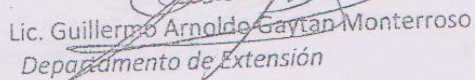 Lic. Guillermo Arnoldo Gaytán Monterroso
Departamento de Extensión